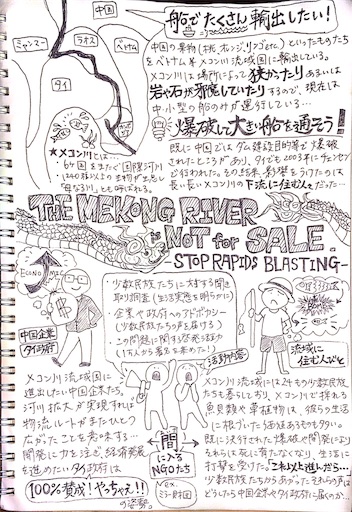 中国
ミャンマー
ラオス
ベトナム
タイ
船でたくさん輸出したい!
中国の果物(桃、オレンジ、リンゴetc)といったものたち
をベトナム等メコン川流域国に輸出している。
メコン川は場所によって狭かったりあるいは
岩や石が邪魔していたりするので、現在は
中・小型の船のみが運行している…
爆破して大きい船を通そう!
既に中国ではダム建設目的等で爆破
されたところがあり、タイでも2003年にチェンセン
で行われた。その結果、影響をうけたのは
長〜い長いメコン川の下流に住む人だった…
★メコン川とは…
6ヶ国をまたぐ国際河川
1240種以上の生物が生息し
「母なる川」とも呼ばれる。
THE MEKONG RIVER
is NOT for SALE
STOP RAPIDS BLASTING-
ECONOMIC
中国企業
タイ政府
・少数民族たちに対する聞き
取り調査(生活実態を明らかに)
・企業や政府へのアドボカシー
(少数民族たちの声を届ける)
・この問題に関する啓発活動
(1万人から署名を集めた!)
活動内容
流域に
住む人びと
間
に入る
NGOたち
ex.
ミラー財団
メコン川流域国に
進出したい中国企業たち。
河川拡大が実現すれば
物流ルートがまたひとつ
広がったことを意味する…
開発に力を注ぎ、経済発展
を進めたいタイ政府は
100%賛成!やっちゃえ!!
の姿勢。
メコン川流域には24もの少数民族
たちも暮らしており、メコン川で採れる
魚貝類や草植物は、彼らの生活
に根づいた価値あるものも多い。
既に決行された爆破や開発により
それらは死に宥たなくなり、生活に
打撃を受けた。「これ以上進んだら…」
少数民族たちからあがったそれらの声は
どうしたら中国企業やタイ政府に届くのか…